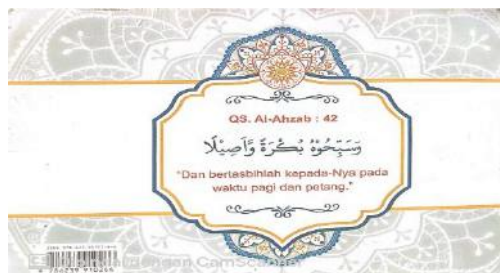 QS. Al-Ahzab : 42
وَسَبِّحُوْهُ بُكْرَةً وَّاَصِيْلًا
"Dan bertasbihlah kepada-Nya pada
waktu pagi dan petang."
dengan CamScanner